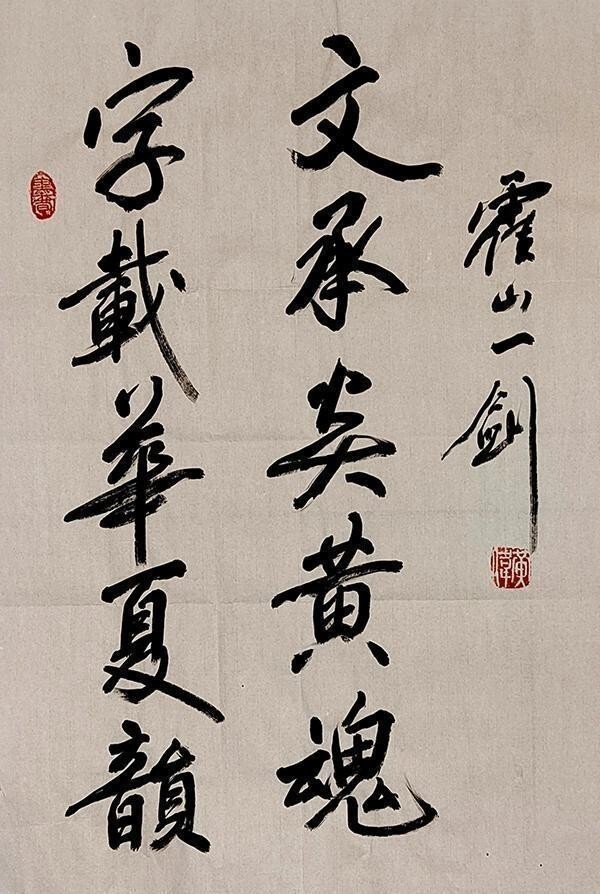 字載華夏韻
文承炎黄魂
霍山一劍
黄偉